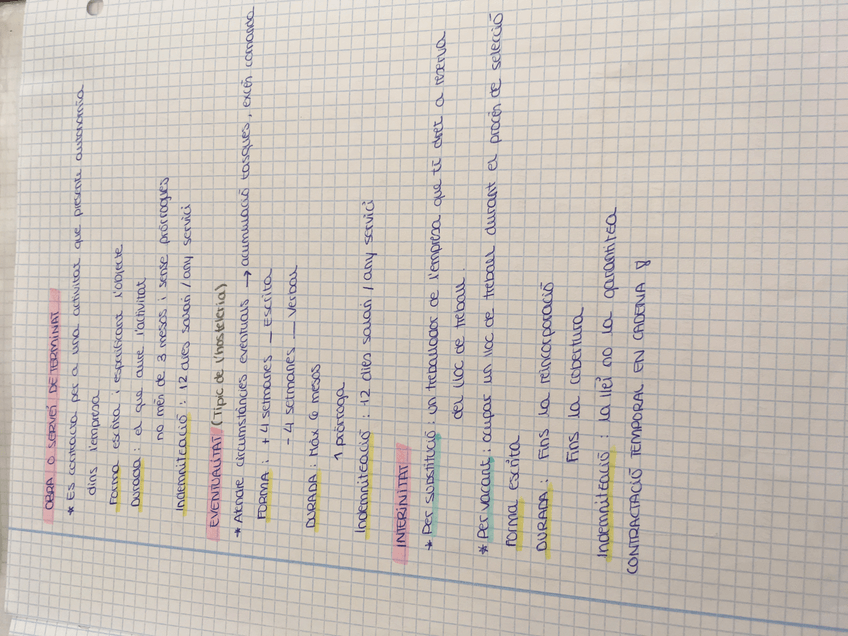 OBRA O SERVEI DETERMINAT
* Es contracta per a una activitat que presenta autonomia
dins l'empresa
Forma escrita i especificant l'objecte
Durada: el que dure l'activitat
no més de 3 mesos i sense pròrrogues
Indemnització: 12 dies salari / any servici
EVENTUALITAT (Típic de l'hosteleria)
* Atendre circumstàncies eventuals → acumulació tasques, excés comanda
FORMA: + 4 setmanes _ Escrita
- 4 setmanes _ Verbal
DURADA: Máx 6 mesos
1 pròrroga
Indemnització: 12 dies salari / any servici
INTERINITAT
* Per substitució: un treballador de l'empresa que té dret a reserva
del lloc de treball.
* Per vacant: ocupar un lloc de treball durant el procés de selecció
Forma escrita
DURADA: Fins la reincorporació
Fins la cobertura
Indemnització: la llei no la garantitza
CONTRACTACIÓ TEMPORAL EN CADENA